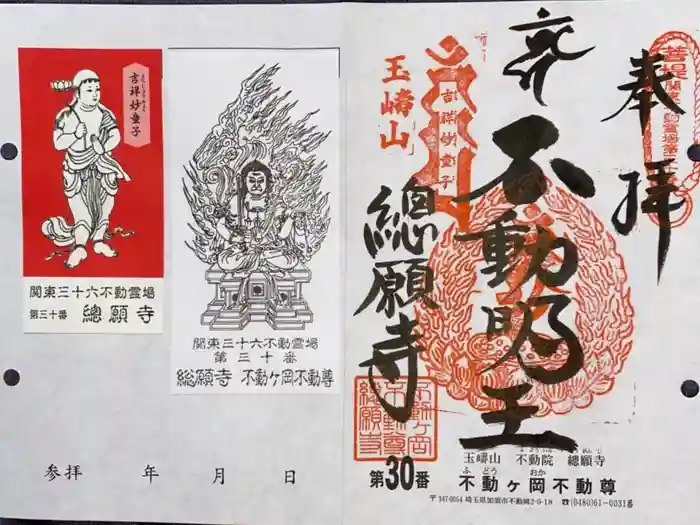 吉祥妙童子
関東三十六不動霊場
第三十番 總願寺
関東三十六不動霊場
第三十番
總願寺 不動ヶ岡不動尊
参拝 年 月 日
奉拝
不動明王
總願寺
玉嶹山
吉祥妙童子
不動ヶ岡
不動尊
總願寺
玉嶹山 不動院 總願寺
ふどう おか
第30番 不動ヶ岡不動尊
〒347-0054 埼玉県加須市不動岡2-9-18 ☎(0480)61-0031番